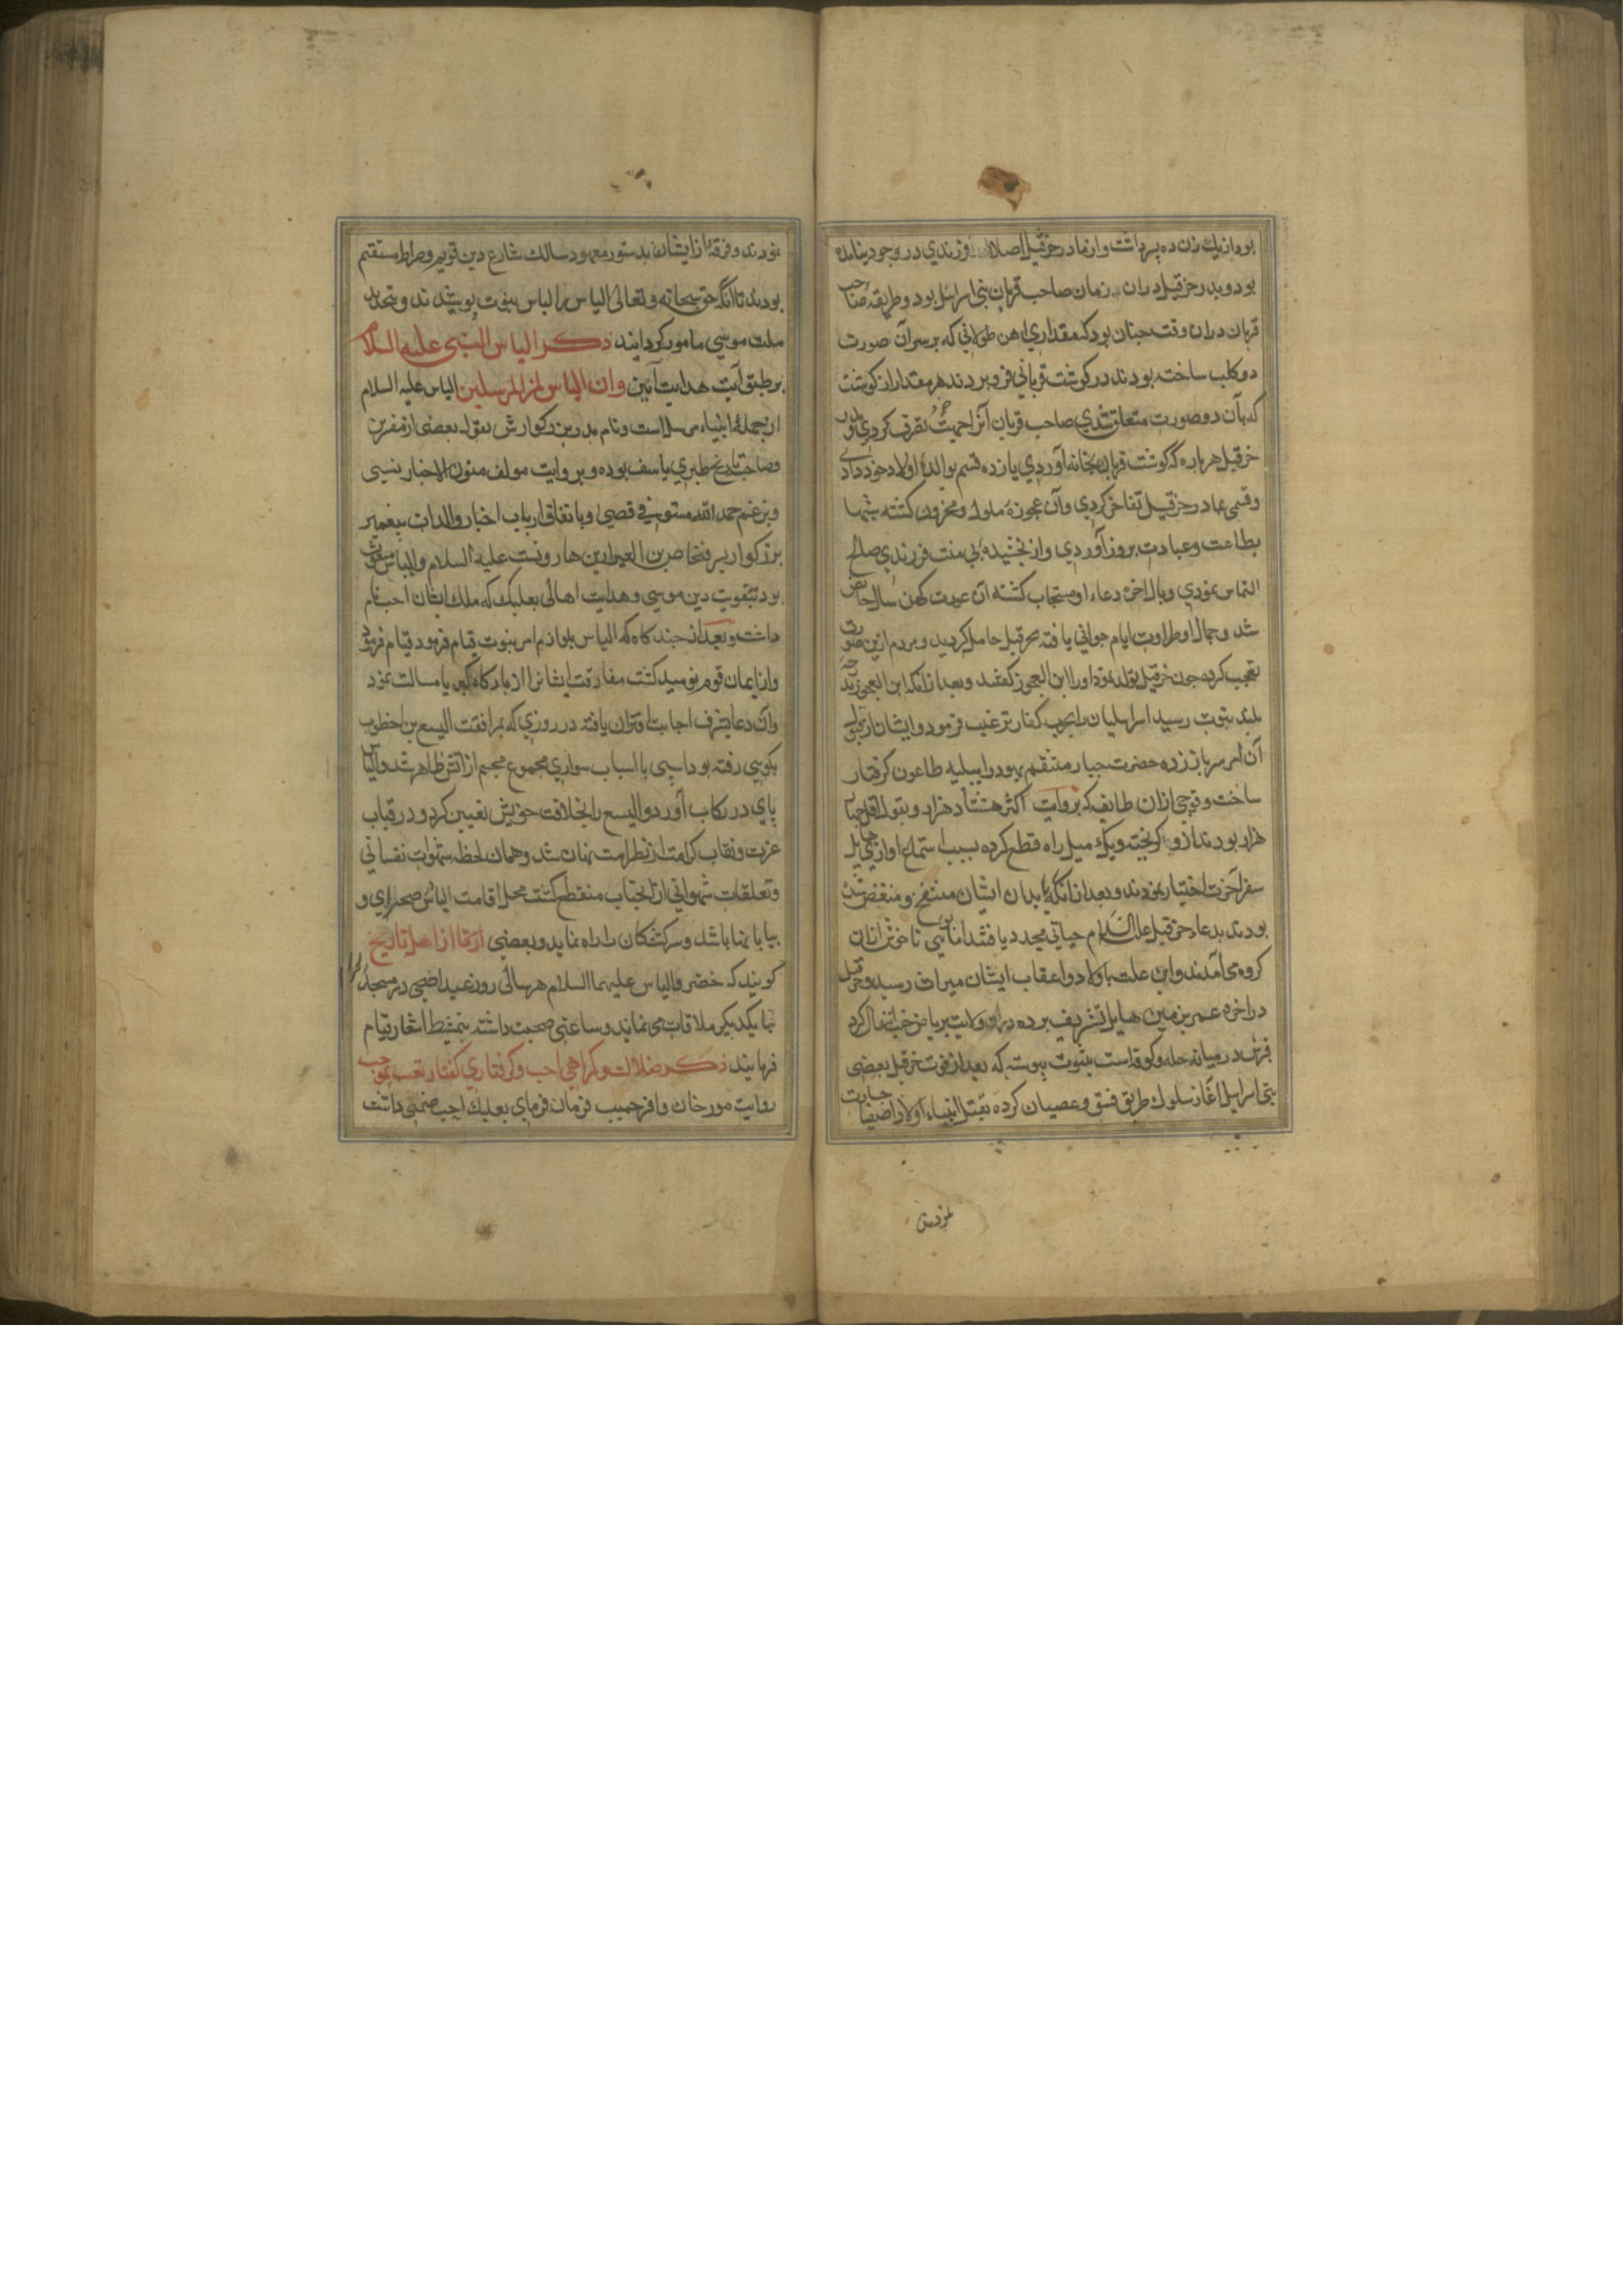 بود از یك زن ده پسر داشت و از مادر خرقیل اصلا فرزندي در وجود نیامده
بود و پدر خرقیل دران زمان صاحب قربان بنی اسرایل بود و طریقه صاحب
قربان دران وقت چنان بود كه مقداري اهن طولانی كه بر سر آن صورت
دو كلب ساخته بودند در كوشت قربانی فرو بردند هر مقدار از كوشت
كه بآن دو صورت متعلق شدي صاحب قربان آنرا تصرف كردي و پدر
خرقیل هر باره كه كوشت قربان بخانه آوردي یازده قسم بوالدهٔ اولاد خود دادي
و قسمی بمادر خرقیل تفاخر كردي و آن عجوزه ملول و محزون كشته شبها
بطاعت و عبادت بروز آوردي و از بخشیده بی منت فرزندي صالح
التماس نمودي و بالاخره دعاء او مستجاب كشته آن عورت كهن سال حایض
شد و جمال او طراوت ایام جوانی یافته بخرقیل حامل كردید و مردم ازین صورت
تعجب كرده چون خرقیل تولد نمود او را ابن العجوز كفتند و بعد از انكه ابن العجوز بدرجه
بلند نبوت رسید اسراییلیان را بحرب كفار ترغیب فرمود و ایشان از قبول
آن امر سر باز زده حضرت جبار منتقم یهود را ببلیه طاعون كرفتار
ساخت و فوجی ازان طایفه كه بروایت اكثر هشتاد هزار و بقول اقل چهار
هزار بودند از وبا كریخته و یك میل راه قطع كرده بسبب استماع اواز هایل
سفر آخرت اختیار نمودند و بعد از انكه ابدان ایشان منتفخ و منغص شده
بودند بدعاء خرقیل علیه السلام حیاتی مجدد یافتند اما بوی ناخوش ازان
كروه می آمدند و این علت باولاد و اعقاب ایشان میراث رسید و خرقیل
در اخر عمر بزمین بابل تشریف برده دران ولایت بریاض جنت انتقال كرد
قبرش در میانه حله و كوفه است بثبوت پیوسته كه بعد از فوت خرقیل بعضی
بنی اسرایل آغاز سلوك طریق فسق و عصیان كرده بقتل انبیاء و اولاد اصفیا جسارت
نمودند
نمودند و فرقهٔ از ایشان بدستور معهود سالك شارع دین قویم و صراط مستقیم
بودند تا انكه حق سبحانه و تعالی الیاس را لباس نبوت پوشیدند و بتجدید
ملت موسی مامور كردانیند ذكر الیاس النبی علیه السلام
بر طبق آیت هدایت آیین وان الیاس لمن المرسلین الیاس علیه السلام
از جملهٔ انبیاء مرسل است و نام پدر بزركوارش بقول بعضی از مفسرین
و صاحب تاریخ طبري یاسف بوده و بروایت مولف متون الاخبار نسیی
و بزعم حمد الله مستوفی فی قصی و باتفاق ارباب اخبار والد ات پیغمبر
بزركوار پسر فنحاص بن العیزار بن هارونست علیه السلام و الیاس مبعوث
بود بتقویت دین موسی و هدایت اهالی بعلبك كه ملك ایشان احب نام
داشت و بعد از چند كاه كه الیاس بلوازم امر نبوت قیام فرمود قیام فرمود
و از ایمان قوم نومید كشت مفارقت ایشانرا از باركاه كبریا مسالت نمود
و آن دعا بشرف اجابت اقتران یافته در روزي كه بمرافقت الیسع بن اخطوب
بكوهی رفته بود اسپی با اسباب سواري مجموع مجسم از اتش ظاهر شد و الیاس
پاي در ركاب آورد و الیسع را بخلافت خویش تعیین كرد و در قباب
عزت و نقاب كرامت از نظر امت نهان شد و همان لحظه شهوات نفسانی
و تعلقات شهوانی از انجناب منقطع كشت محل اقامت الیاس صحراي و
بیابانها باشد و سركشتكان را راه نماید و بعضی از اهل تاریخ
كویند كه خضر و الیاس علیهما السلام هر سالی روز عید اضحی در مسجد
با یكدیكر ملاقات می نمایند و ساعتی صحبت داشته قیام
فرمایند ذكر ضلالت و كمراهی احب و كرفتاري كفار تعب بموجب
روایت مورخان وافر حسیب فرمان فرماي بعلبك احب صنمی داشت